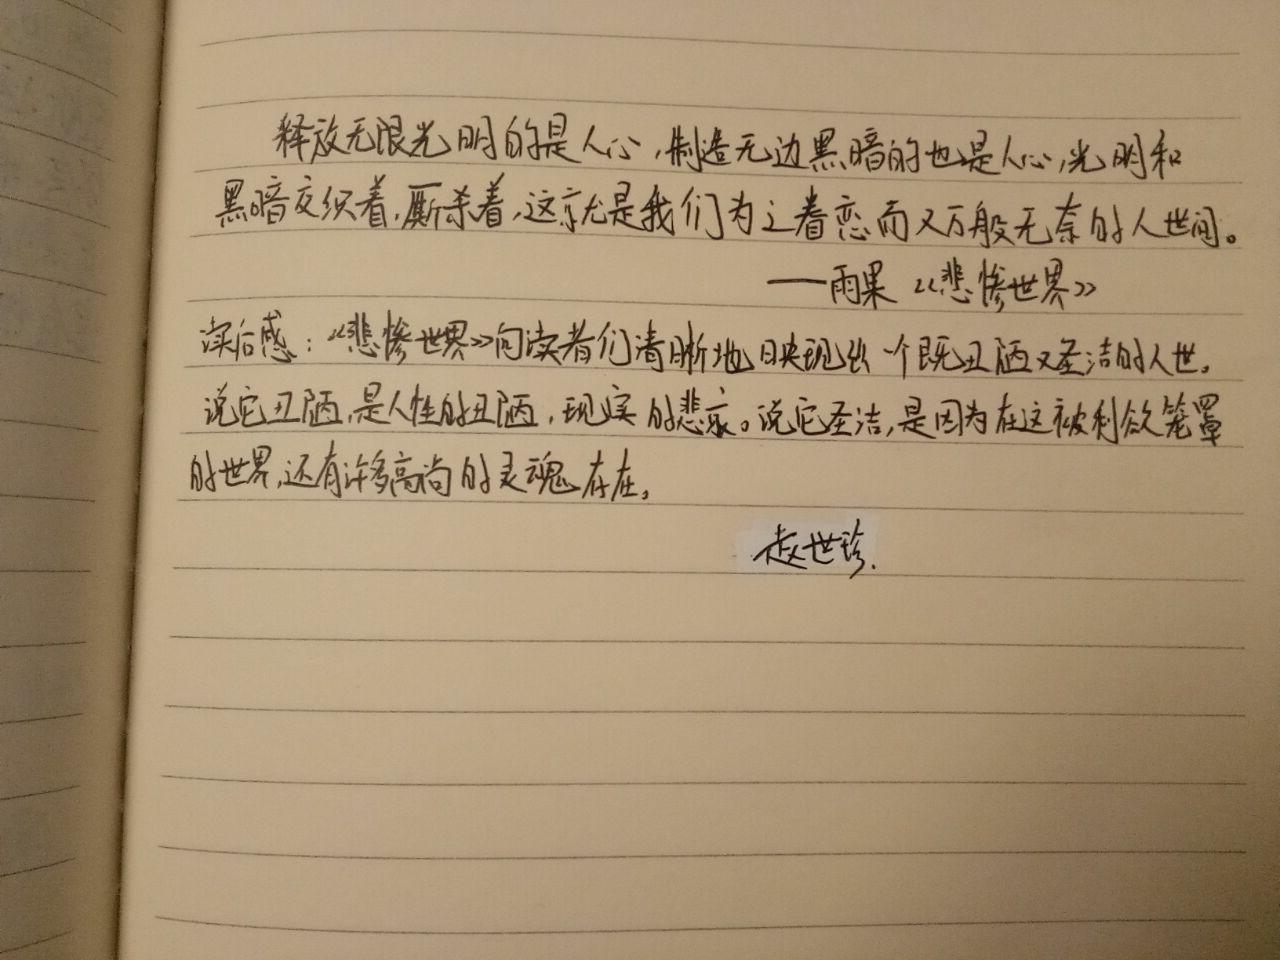 释放无限光明的是人心，制造无边黑暗的也是人心，光明和
黑暗交织着，厮杀着，这就是我们为之眷恋而又万般无奈的人世间。
——雨果《悲惨世界》
读后感：《悲惨世界》向读者们清晰地映现出一个既丑陋又圣洁的人世。
说它丑陋，是人性的丑陋，现实的悲哀。说它圣洁，是因为在这被利欲笼罩
的世界，还有许多高尚的灵魂存在。
赵世珍.